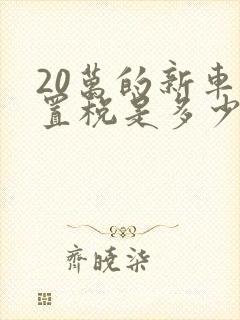 20萬的新車
置稅是多少
齊曉柒